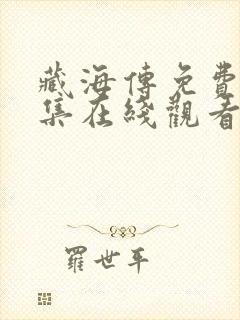 藏海傳免費
集在綫觀看
羅世平